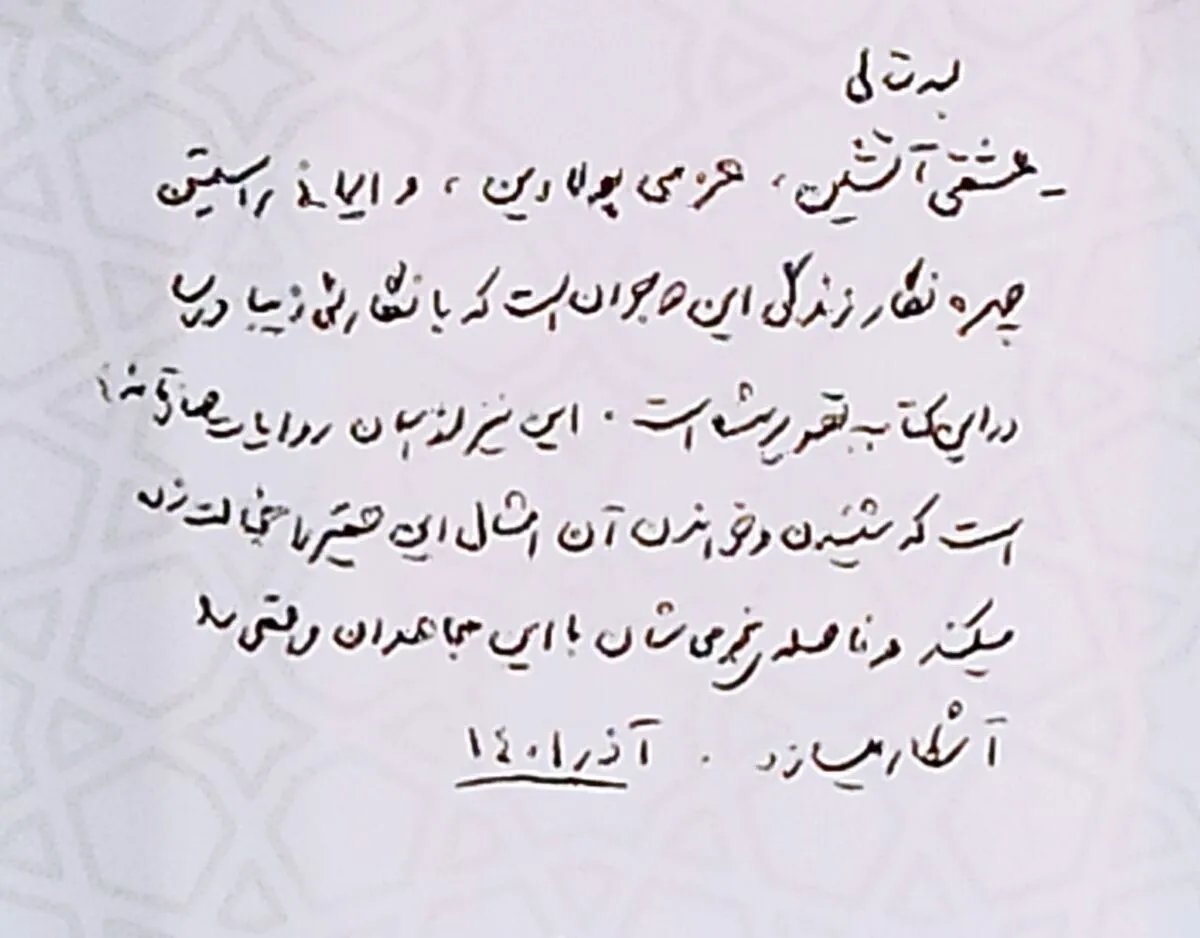 بسمه‌تعالی
ـ عشقی آتشین، عزمی پولادین، و ایمانی راستین
چهره نگار زندگی این جوان است که با نگارشی زیبا و رسا
در این کتاب به تصویر شده است. این نیز از آن روایات صادقانه‌ای
است که شنیدن و خواندن آن امثال این حقیر را خجالت‌زده
میکند و فاصله نجومی‌شان با این مجاهدان واقعی را
آشکار میسازد. آذر ۱۴۰۱